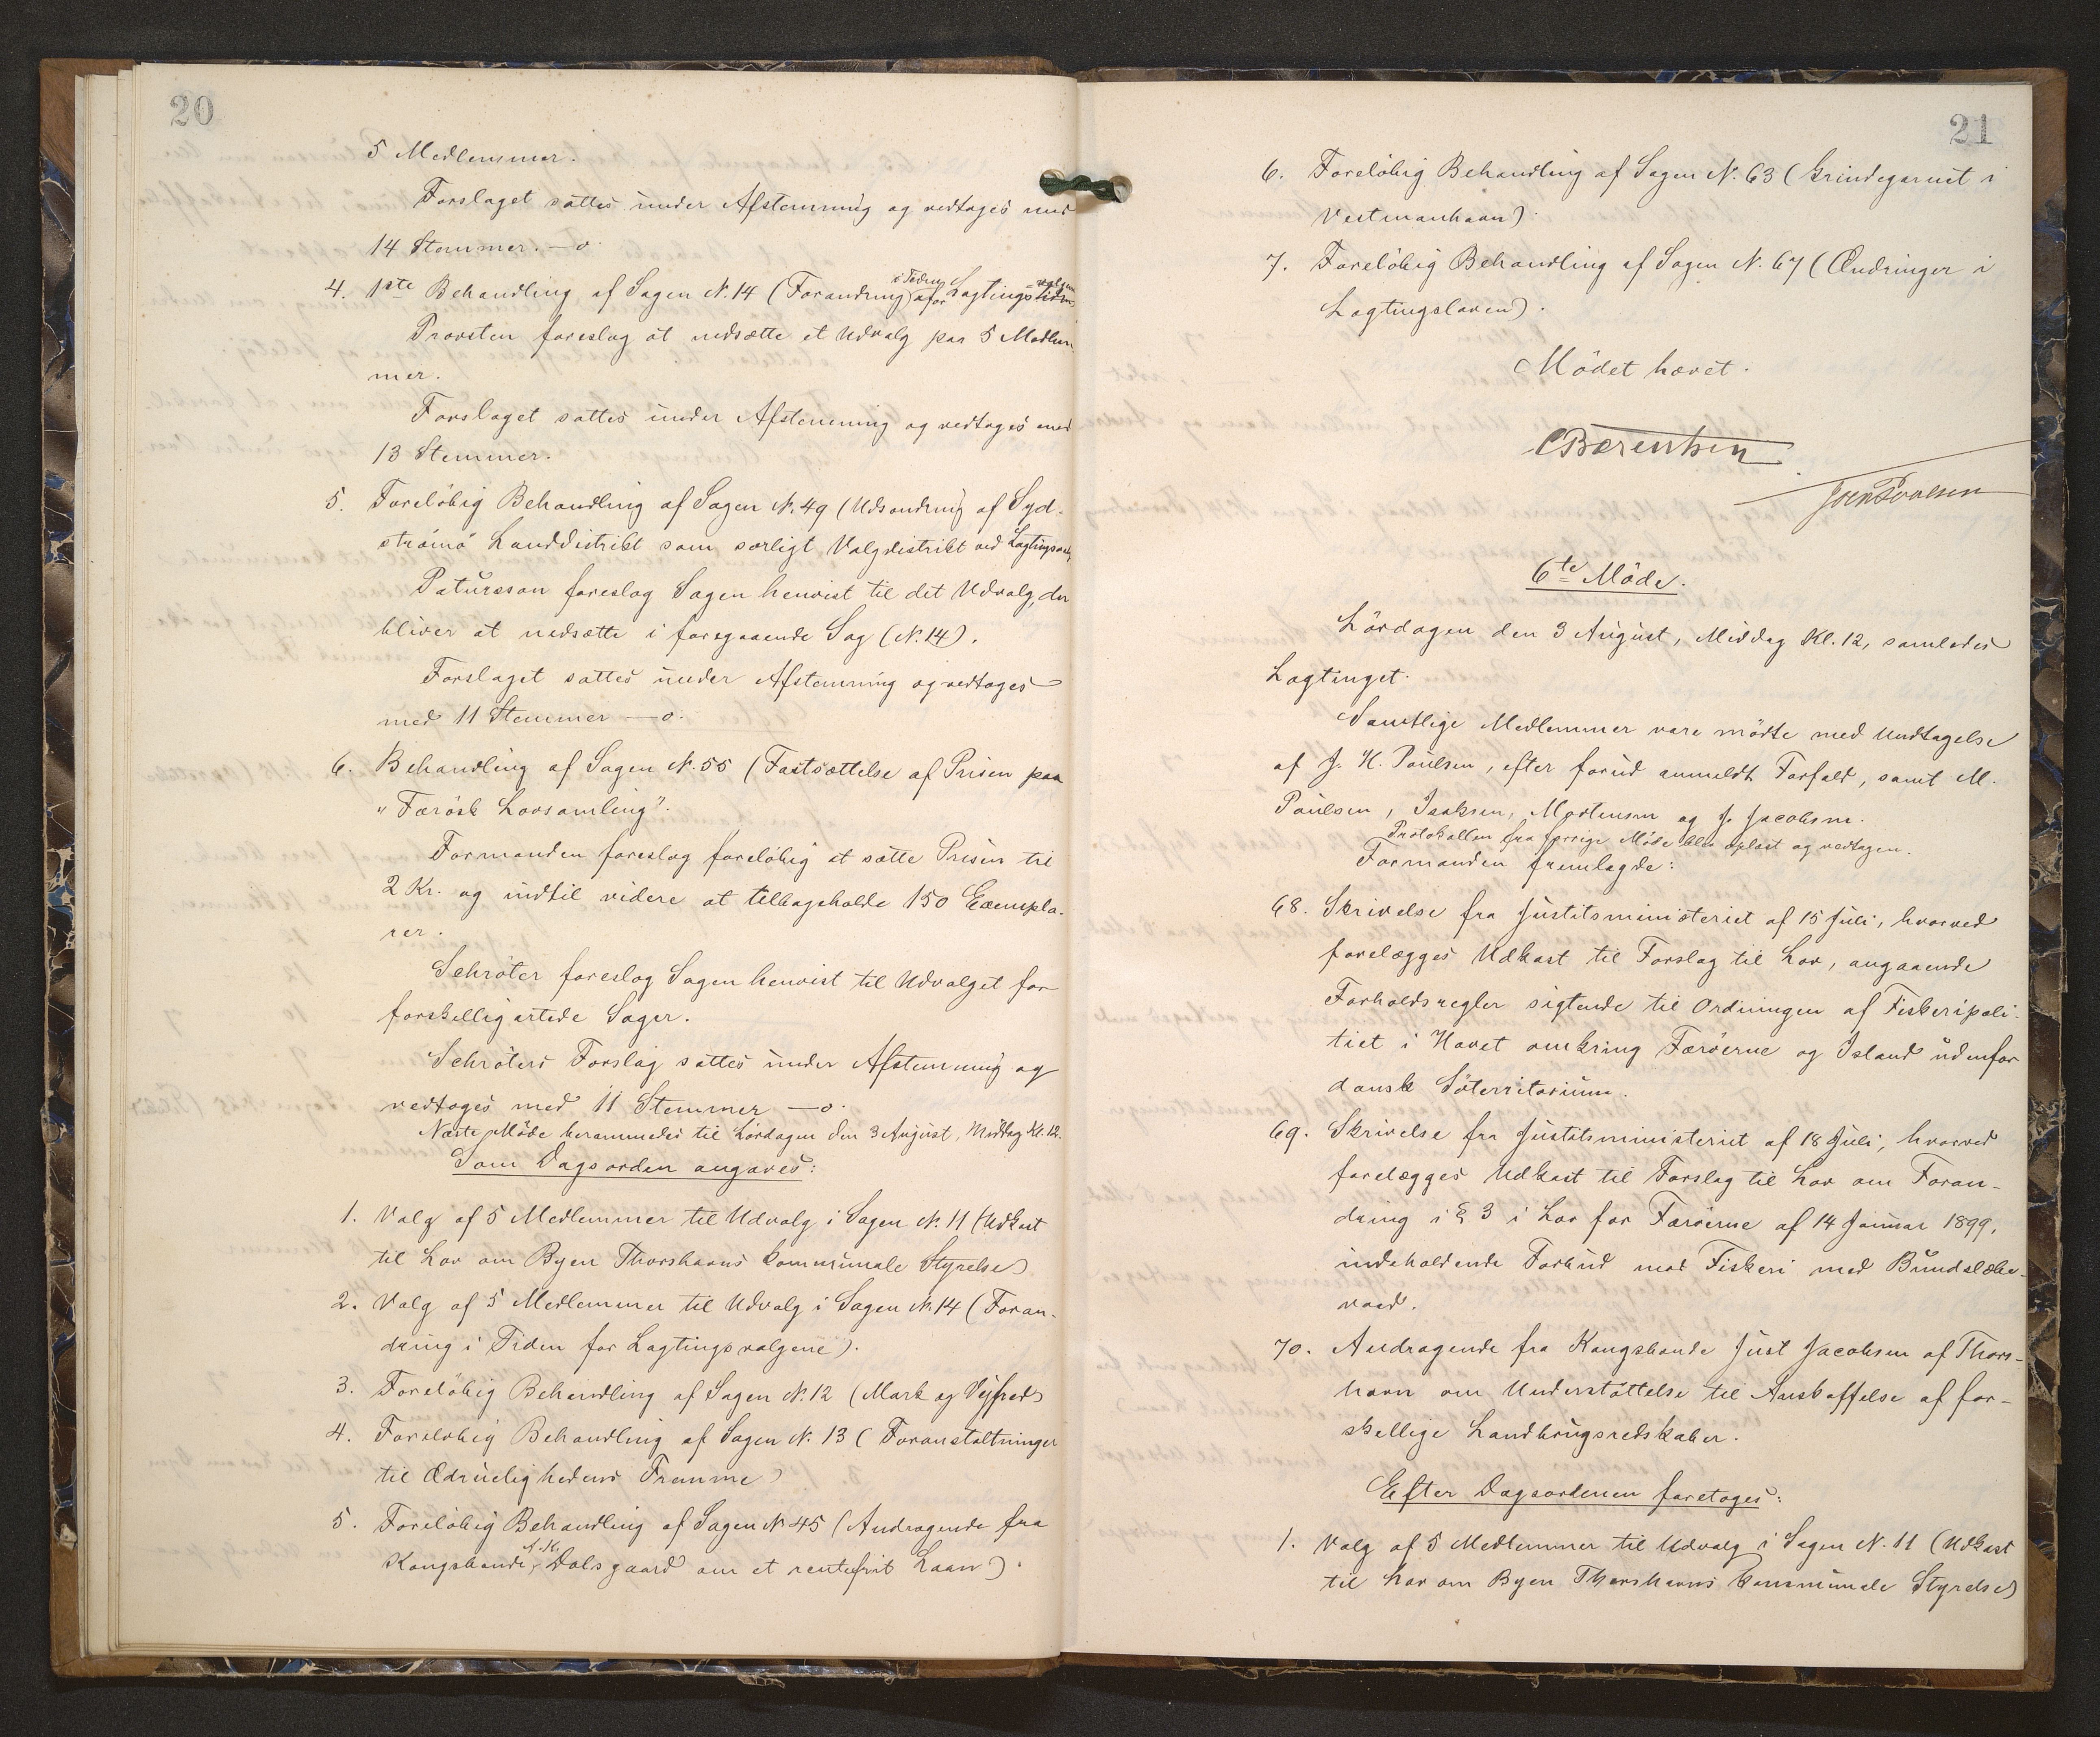 20
5 Medlemmer.
Forslaget sattes under Afstemning og vedtoges med
14 Stemmer. —o.
4. 1ste Behandling af Sagen N. 14 (Forandring i Tiden for Lagtingsvalgene
Provsten foreslog at nedsætte et Udvalg paa 5 Medlem-
mer.
Forslaget sattes under Afstemning og vedtoges med
13 Stemmer.
5. Foreløbig Behandling af Sagen N. 49 (Udsondring af Syd-
strömö Landdistrikt som særligt Valgdistrikt ved Lagtingsvalg
Patursson foreslog Sagen henvist til det Udvalg, der
bliver at nedsætte i foregaaende Sag (N. 14).
Forslaget sattes under Afstemning og vedtoges
med 11 Stemmer —o.
6. Behandling af Sagen N. 55 (Fastsættelse af Prisen paa
"Færösk Lovsamling".
Formanden foreslog foreløbig at sætte Prisen til
2 Kr. og indtil videre at tilbageholde 150 Exempla-
rer.
Schröter foreslog Sagen henvist til Udvalget for
forskelligartede Sager.
Schröters Forslag sattes under Afstemning og
vedtoges med 11 Stemmer —o.
Næste Möde berammedes til Lördagen den 3 August, Middag Kl. 12.
Som Dagsorden angaves:
1. Valg af 5 Medlemmer til Udvalg i Sagen N. 11 (Udkast
til Lov om Byen Thorshavns kommunale Styrelse)
2. Valg af 5 Medlemmer til Udvalg i Sagen N. 14 (Foran-
dring i Tiden for Lagtingsvalgene).
3. Foreløbig Behandling af Sagen N. 12 (Mark og Vejfred)
4. Foreløbig Behandling af Sagen N. 13 (Foranstaltninger
til Ædruelighedens Fremme)
5. Foreløbig Behandling af Sagen N. 45 (Andragende fra
Kongsbonde, Dalsgaard om et rentefrit Laan).
21
6. Foreløbig Behandling af Sagen N. 63 (Grindegarnet i
Vestmanhavn).
7. Foreløbig Behandling af Sagen N. 67 (Ændringer i
Lagtingsloven).
Mödet hævet.
CBærentsen
Joen Poulsen
6te Möde.
Lördagen den 3 August, Middag Kl. 12, samledes
Lagtinget.
Samtlige Medlemmer vare mödte med Undtagelse
af J. H. Poulsen, efter forud anmeldt Forfald, samt M.
Poulsen, Isaksen, Mortensen og J. Jacobsen.
Protokollen fra forrige Möde blev oplæst og vedtagen.
Formanden fremlagde:
68. Skrivelse fra Justitsministeriet af 15 Juli, hvorved
forelægges Udkast til Forslag til Lov, angaaende
Forholdsregler sigtende til Ordningen af Fiskeripoli-
tiet i Havet omkring Færöerne og Island udenfor
dansk Söterritorium.
69. Skrivelse fra Justitsministeriet af 18 Juli, hvorved
forelægges Udkast til Forslag til Lov om Foran-
dring i § 3 i Lov for Færöerne af 14 Januar 1899,
indeholdende Forbud mod Fiskeri med Bundslæbe-
vaad.
70. Andragende fra Kongsbonde Just Jacobsen af Thors-
havn om Understöttelse til Anskaffelse af for-
skellige Landbrugsredskaber.
Efter Dagsordenen foretoges:
1. Valg af 5 Medlemmer til Udvalg i Sagen N. 11 (Udkast
til Lov om Byen Thorshavns kommunale Styrelse)